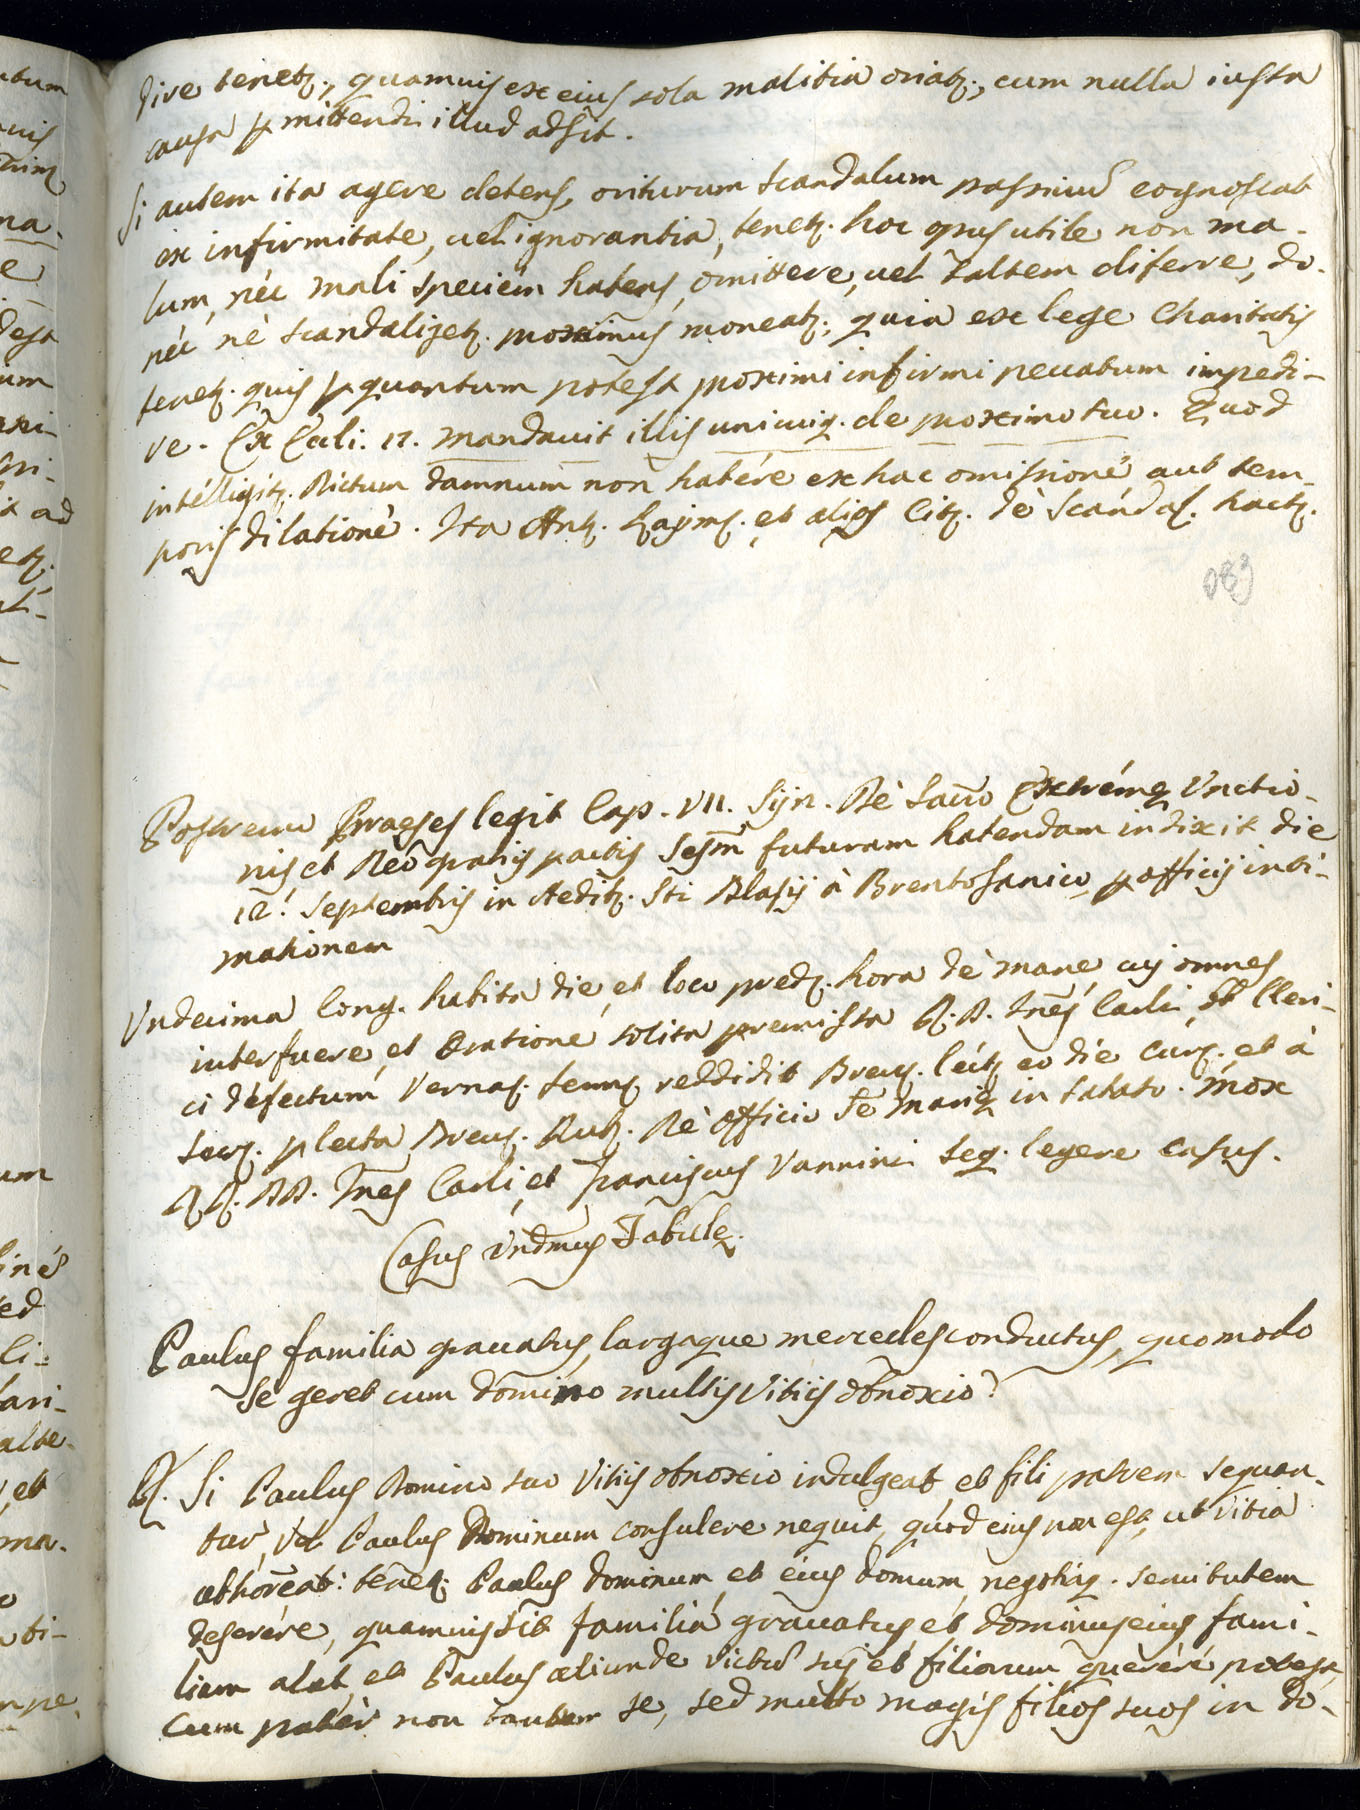 dire tenetz., quamuis ex eius sola malitia oriatz., cum nulla iusta
causa pmittendi illud adsit.
Si autem ita agere debens, oriturum scandalum passiuū cognoscat
ex infirmitate, uel ignorantia, tenetz. hoc opus utile non ma-
lum, nec mali speciem habens, omittere, uel saltem diferre, do-
nec nè scandalizetz. proximus moneatz.; quia ex lege Charitatis
tenetz. quis p quantum potest proximi infirmi peccatum impedi-
re. Ex Eccli: 17. mandauit illis unicuiq. de proximo suo. Quod
intelligitz. dictum damnum non habére ex hac omissioné aut tem-
poris dilationè. Ita et alios Citz. dè Scándal. hactz.
089
Postremo Praeses legit Cap. VII. Syn. Dè Sacrō Extrémę Unctio-
nis, et Deō gratijs pactis Sesm̄ futuram habendam indixit die
12! Septembris in Aedibz. Sti Blasij à Brentosanico p officij inti-
mationem
Vndecima Cong. habita die, et loco predz. hora dè mane, cuj omnes
interfuere, et Oratione solita premissa R. D. Jnes Carli, ob Cleri-
ci défectum Vernaz. reddidit Breuz. eo die Curz. et à
Secrz. plecta Breuz. Rubz. Dè Officio Sē Marię in Sabato. mox
R.R. DD. Jnes Carli, et Franciscus Vannini seq. legere casus.
Casus Vndmus Tabulę.
Paulus familia grauatus, largaque mercede conductus, quomodo
se geret cum domino multis Vitijs obnoxio?
R. Si Paulus Domino suo Vitijs obnoxio indulgeat et fili patrem sequan-
tur, Vel Paulus Dominum consulere nequit, quod eius non est, ut Vitia
abhoreat: tenetz. Paulus dominum, et eius domum, negotiiq. seruitutem
deserére, quamuis sit familiá grauatus et dominus eius fami-
liam alat et Paulus aliunde Victū suj et filiorum querére potest,
Cum pater non tantum se, sed multo magis filios suos in do-